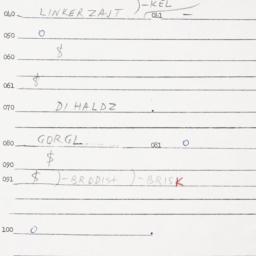 040 LINKERZAJT )-KEL
041 —
050 O
060 $
061 $
070 DI HALDZ .
080 GORGL 081 O
090 $
091 $ )-BRDDIST )-BRISK
100 O .